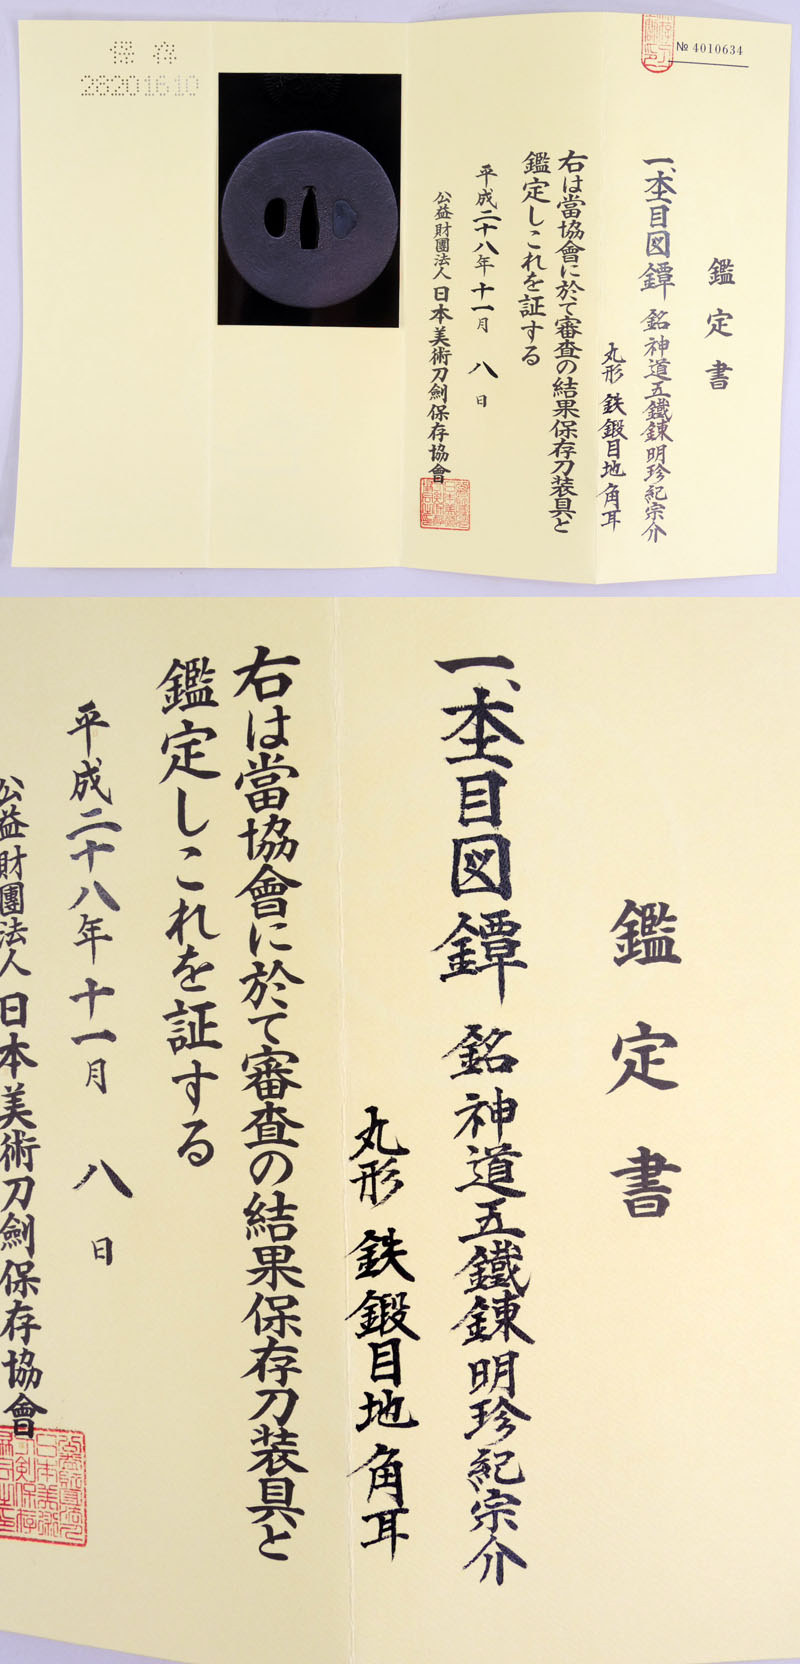 保存
28201610
№ 4010634
鑑定書
一、杢目図鐔 銘 神道五鐵錬明珍紀宗介
丸形 鉄鍛目地 角耳
右は當協會に於て審査の結果保存刀装具と
鑑定しこれを証する
平成二十八年十一月八日
公益財團法人日本美術刀劍保存協會
鑑定書
一、杢目図鐔 銘 神道五鐵錬明珍紀宗介
丸形 鉄鍛目地 角耳
右は當協會に於て審査の結果保存刀装具と
鑑定しこれを証する
平成二十八年十一月八日
公益財團法人日本美術刀劍保存協會